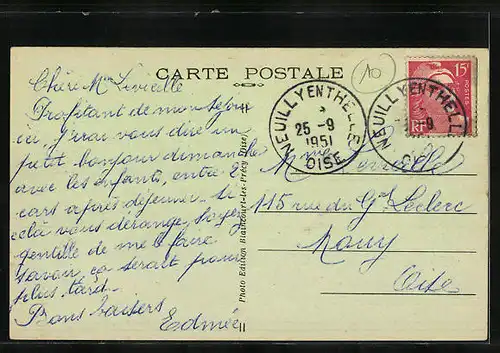 CARTE POSTALE
10
15F
POSTES
RF
NEUILLY EN THELLE
25 -9
1951
OISE
NEUILLY EN THELLE
-9
Chère Mme
Profitant de mon séjour
ici, j'irai vous dire un
petit bonjour dimanche
avec les enfants, entre 2
cars après déjeuner. Si
celà vous dérange, soyez
gentille de me le faire
savoir, ça serait pour
plus tard.
Bons baisers
Edmée
Photo Edition Blaincourt-les-Précy (Oise)
Mme
115 rue du Gal Leclerc
Mouy
Oise